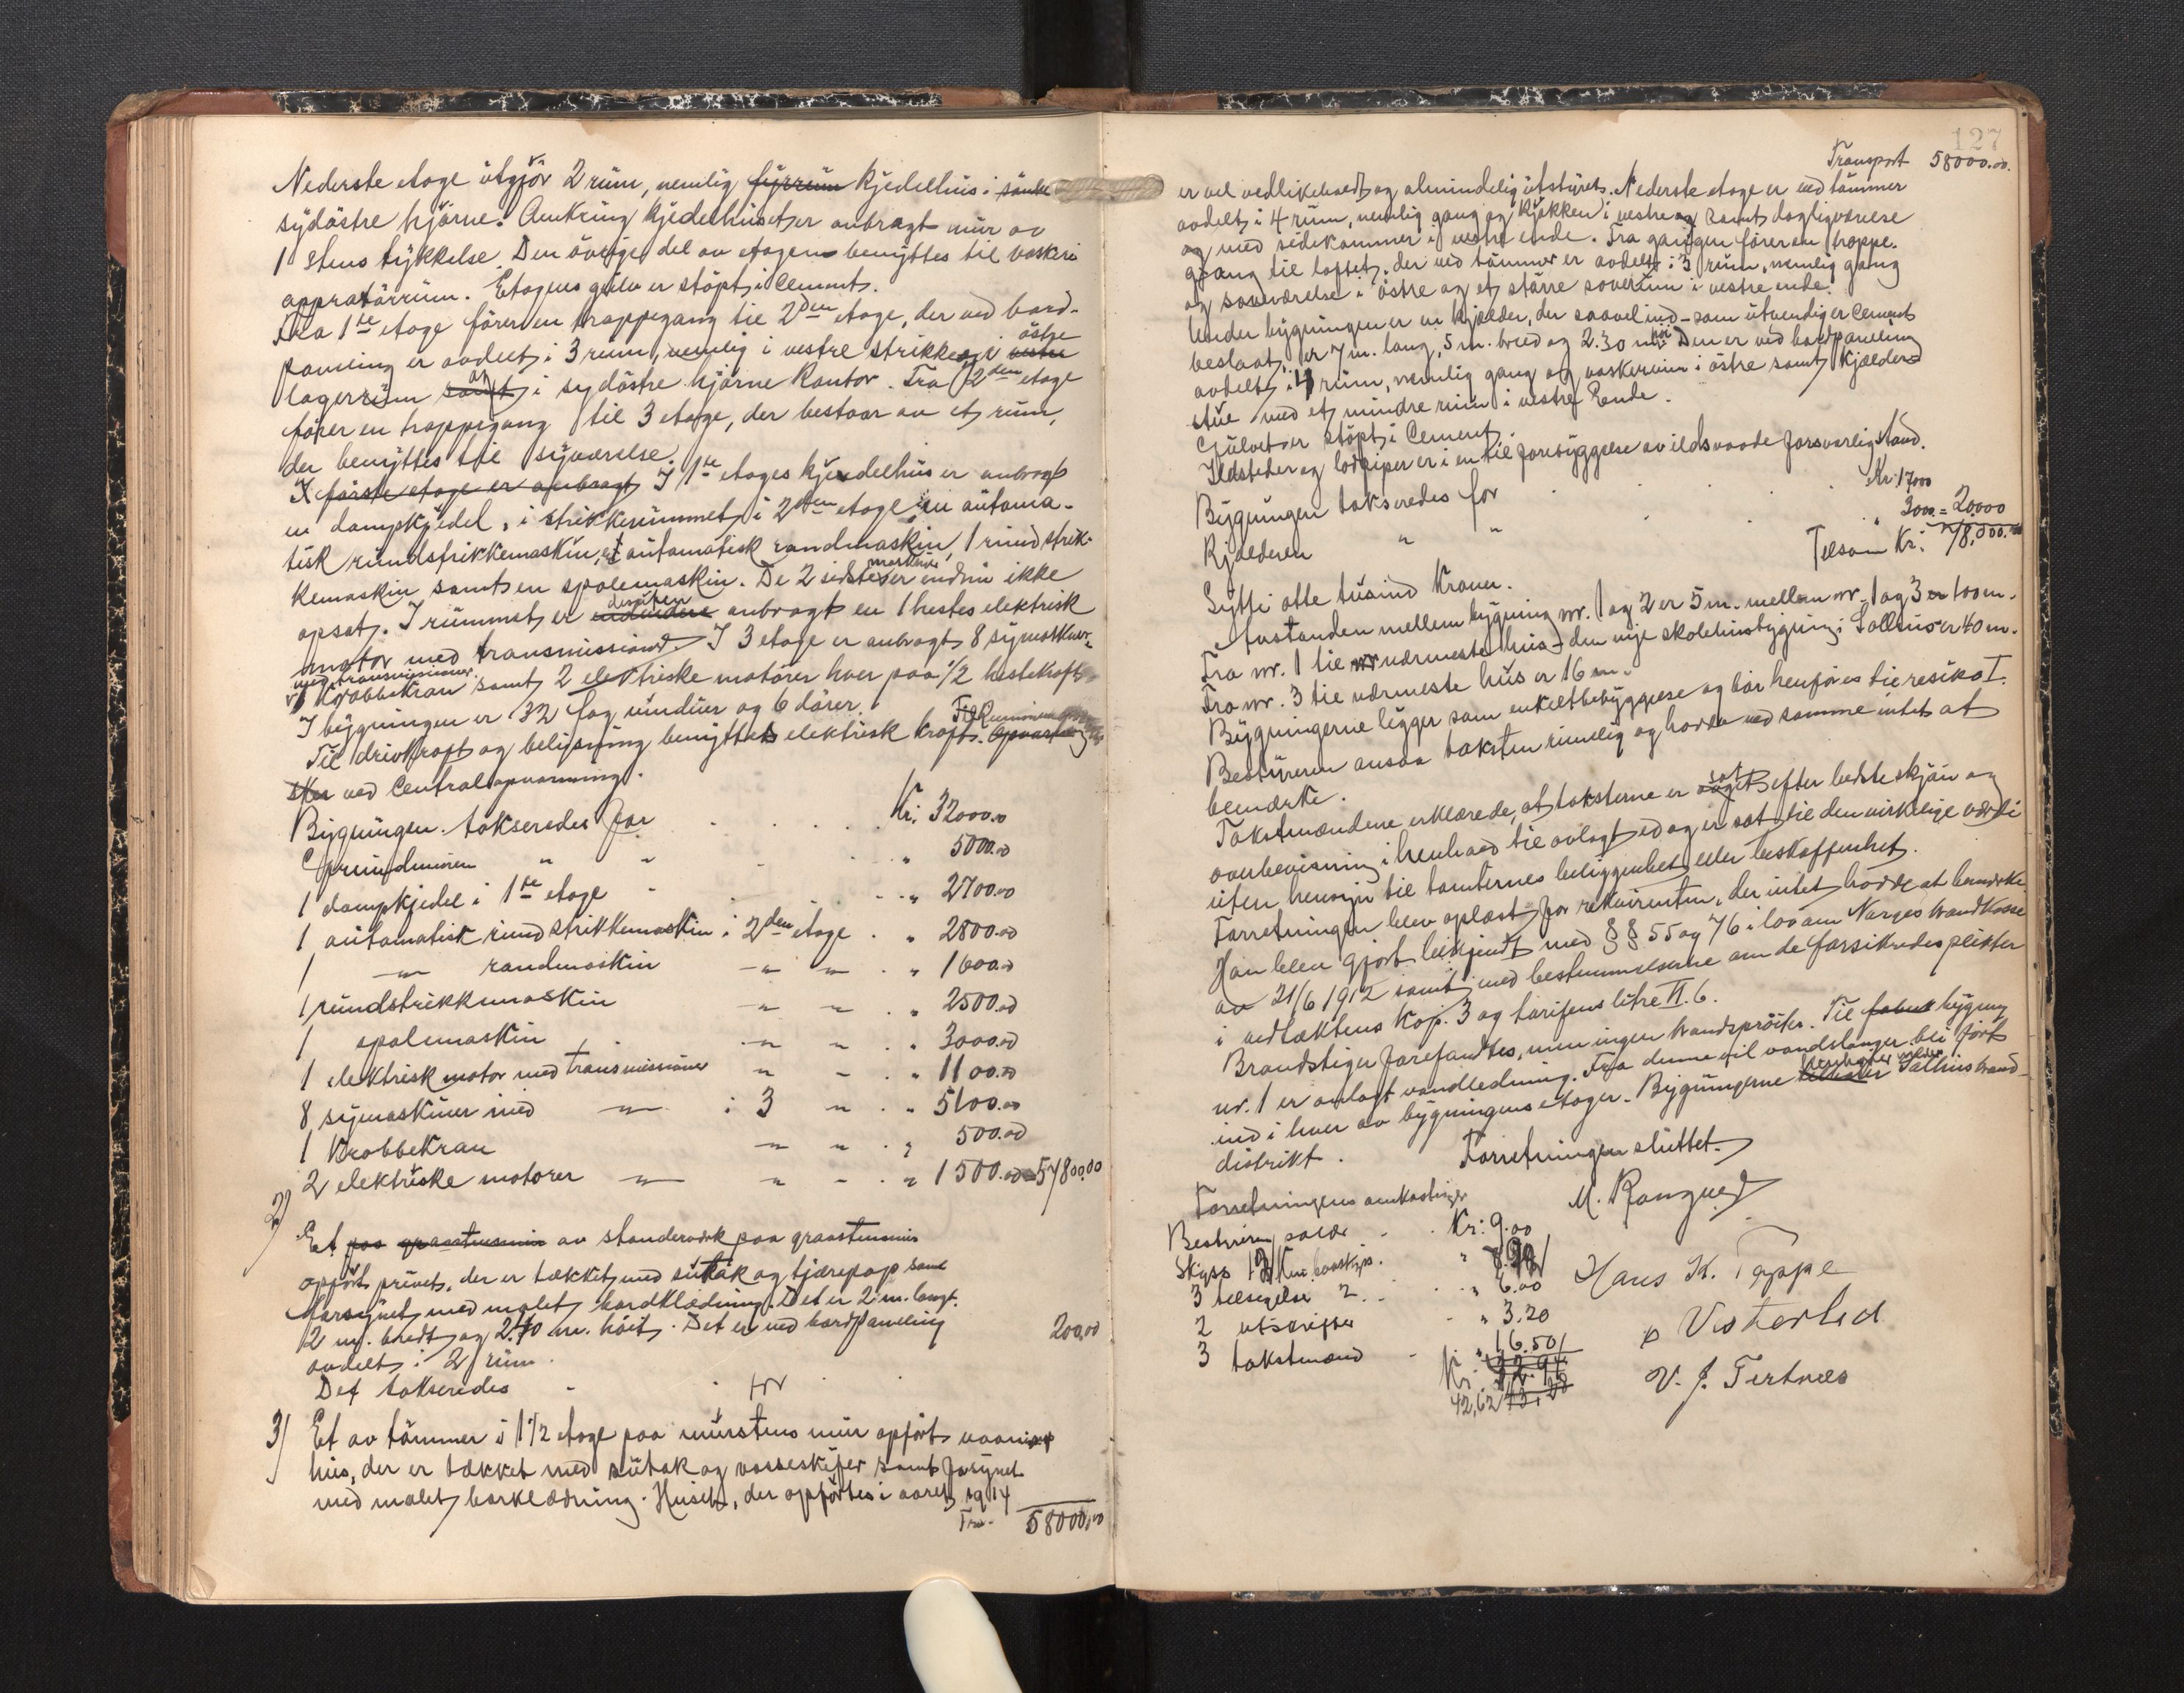 Nederste etage utgjör 2 rum, nemlig fyrrum kjedelhus i
sydöstre hjörne. Omkring kjedelhuset er anbragt mur av
1 Stens tykkelse. Den övrige del av etagen benyttes til vaskeri
apparatörrum. Etagens gulv er stöpt i Cement.
Fra 1ste etage förer en trappegang til 2den etage, der ved bord-
paneling er avdelt i 3 rum, nemlig i vestre strikkeri, i östre vestre
lagerrum samt og i sydöstre hjörne Kontor. Fra 2den etage
förer en trappegang til 3 etage, der bestaar av et rum,
der benyttes til syværelse.
I förste etage er anbragt I 1ste etages kjedelhus er anbragt
en dampkjedel, i strikkerummet i 2den etage en automa-
tisk rundstrikkemaskin, et automatisk randmaskin, 1 rundstrik-
kemaskin samt en spolemaskin. De 2 sidste maskiner er endnu ikke
opsat. I rummet er endvidere desuten anbragt en 1 hestes elektrisk
motor med transmissioner. I 3 etage er anbragt 8 symaskiner
med transmissioner, 1 Krabbekran samt 2 elektriske motorer hver paa 1/2 hestekraft
I bygningen er 32 fag vinduer og 6 dörer.
Til drivkraft og belysning benyttes elektrisk kraft. Opvarmning
sker ved Centralopvarmning.
Bygningen takseredes for . . . . Kr. 32000.00
Grundmuren " " . . . " 5000.00
1 dampkjedel i 1ste etage - . . . " 2700.00
1 automatisk rundstrikkemaskin i 2den etage . " 2800.00
1 —"— randmaskin —"— " . " 1600.00
1 rundstrikkemaskin " " . " 2500.00
1 spolemaskin . " " . " 3000.00
1 elektrisk motor med transmissioner " " . " 1100.00
8 symaskiner med —"— i 3 " . " 5100.00
1 Krabbekran " " . " 500.00
2 elektriske motorer —"— " " . " 1500.00 = 57800.00
2)
Et paa graastensmur av standerverk paa graastensmur
opfört privet, der er tækket med sutak og tjærepap samt
forsynet med malet bordklædning. Det er 2 m. langt,
2 m. bredt og 2.40 m. höit. Det er ved bordpaneling
avdelt i 2 rum.
Det takseredes . for . 200,00
3) Et av tömmer i 1 1/2 etage paa murstens mur opfört vaanings-
hus, der er tækket med sutak og vosseskifer samt forsynet
med malet borklædning. Huset, der opförtes i aaret 1914
Tra. 58000,00
127
Transport 58000.00.
er vel vedlikeholdt og almindelig utstyret. Nederste etage er ved tömmer
avdelt i 4 rum, nemlig gang og Kjökken i vestre og samt dagligværelse
og med sidekammer i vestre ende. Fra gangen förer en trappe-
gang til loftet, der ved tömmer er avdelt i 3 rum, nemlig gang
og soveværelse i östre og et större soverum i vestre ende.
Under bygningen er en kjælder, der saavel ind- som utvendig er Cement
beslaat, er 7 m. lang, 5 m. bred og 2.30 m. höi. Den er ved bordpaneling
avdelt i 4 rum, nemlig gang og vaskerum i östre samt Kjælder-
stue med et mindre rum i vestre Ende.
Gulvet er stöpt i Cement.
Ildsteder og lodpiper er i en til forebyggelse av ildsvaade forsvarlig stand.
Bygningen takseredes for . . . . Kr. 17000
Kjælderen " " . . " 3000 = 20000
Tilsam Kr. 78,000.00
Sytti otte tusind Kroner.
Avstanden mellem bygning nr. 1 og 2 er 5 m. mellem nr. 1 og 3 er 100 m.
Fra nr. 1 til nr nærmeste hus - den nye skolehusbygning i Salhus er 40 m.
Fra nr. 3 til nærmeste hus er 16 m.
Bygningerne ligger som enkeltbebyggelse og bör henföres til resiko I.
Bestyreren ansaa taksten rimelig og havde ved samme intet at
bemærke.
Takstmændene erklærede, at taksterne er avgit sat efter bedste skjön og
overbevisning i henhold til avlagt ed og er sat til den virkelige værdi
uten hensyn til tomternes beliggenhet eller beskaffenhet.
Forretningen blev oplæst for rekvirenten, der intet havde at bemerke
Han blev gjort bekjendt med §§ 55 og 76 i lov om Norges brandkasse
av 21/6 1912 samt med bestemmelserne om de forsikredes plikter
i vedtektens kap. 3 og tarifens litre II. 6.
Brandstiger forefandtes, men ingen brandspröiter. Til fabrik bygning
nr. 1 er anlagt vandledning. Fra denne vil vandslanger bli fört
ind i hver av bygningens etager. Bygningerne tilhörer henhörer under Salhus brand-
distrikt.
Forretningen sluttet.
M. Rongved
Forretningens omkostninger
Bestyrerens salær . . Kr: 9.00
Hans K. Toppe
3 tilsigelse 2 . . " 6.00
2 utskrifter . " 3.20
Vesterlid
3 takstmænd - . " 16.50
42,62
V. J. Tertnes